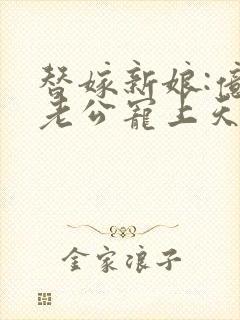 替嫁新娘:億
老公寵上天
金家浪子